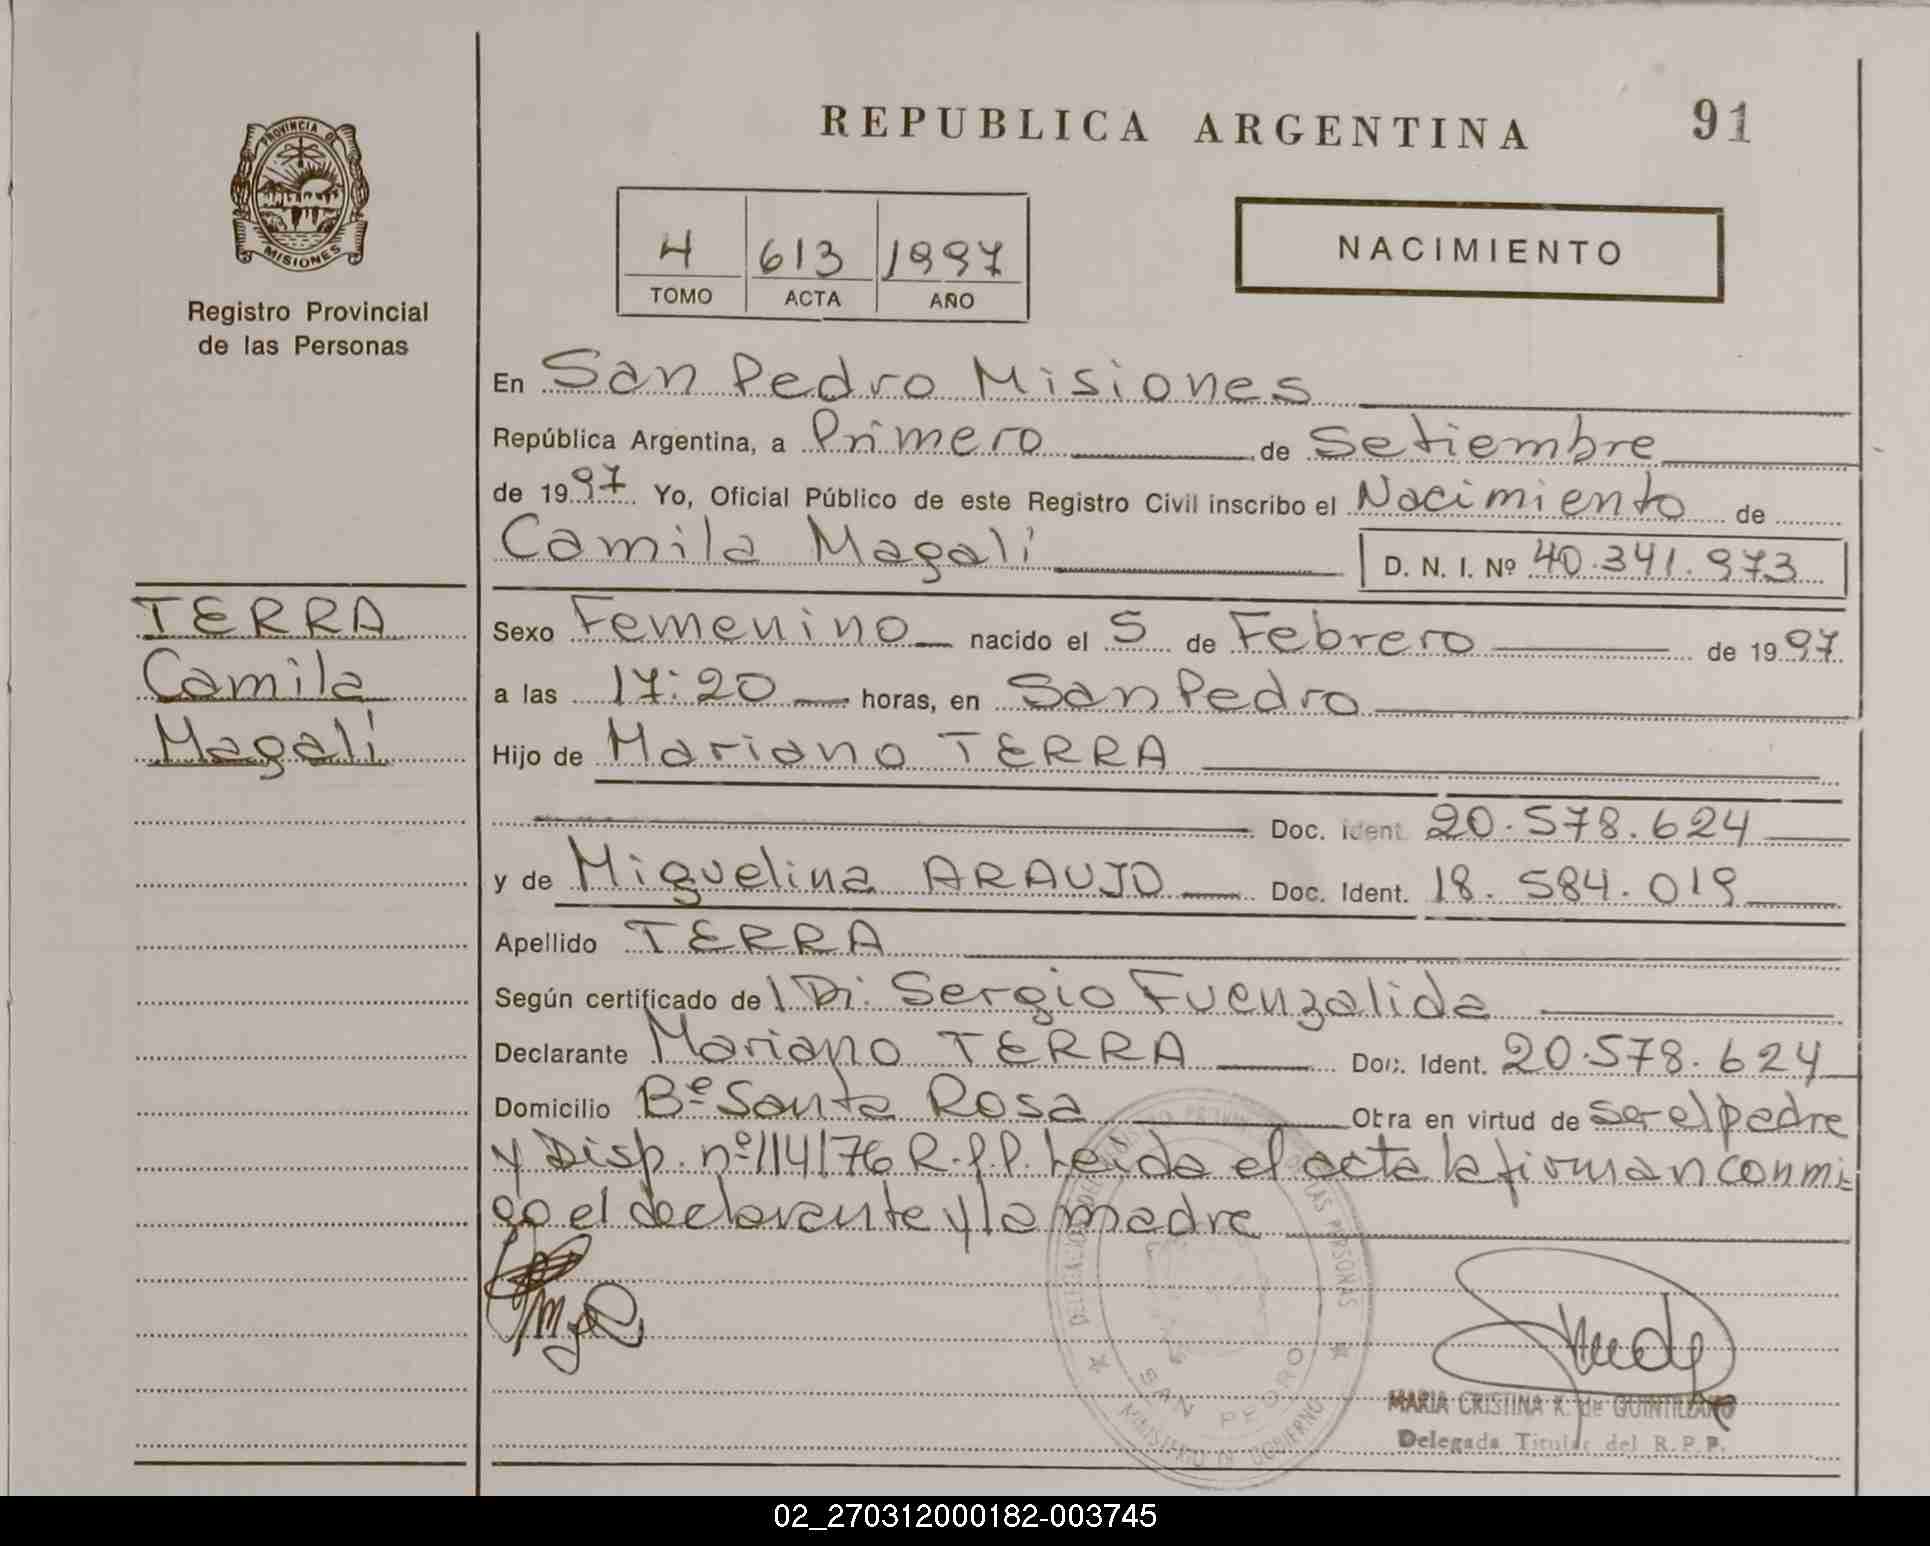 REPUBLICA ARGENTINA
91
PROVINCIA DE
MISIONES
Registro Provincial
de las Personas
4 613 1997
TOMO ACTA AÑO
NACIMIENTO
En San Pedro Misiones
República Argentina, a Primero de Setiembre
de 1997 Yo, Oficial Público de este Registro Civil inscribo el Nacimiento de
Camila Magalí D. N. I. Nº 40.341.973
TERRA
Camila
Magalí
Sexo Femenino nacido el 5 de Febrero de 1997
a las 17:20 horas, en San Pedro
Hijo de Mariano TERRA
Doc. ident. 20.578.624
y de Miguelina ARAUJO Doc. Ident. 18.584.019
Apellido TERRA
Según certificado de Sergio Fuenzalida
Declarante Mariano TERRA Doc. Ident. 20.578.624
Domicilio Bº Santa Rosa Otra en virtud de ser el padre
y Disp. nº 114/76 R.P.P. Leida el acta la firman conmi
go el declarante y la madre
DELEGACION DEL REGISTRO PROVINCIAL DE LAS PERSONAS
SAN PEDRO
MINISTERIO DE GOBIERNO
MARIA CRISTINA K. de QUINTILLANO
Delegada Titular del R.P.P.
02_270312000182-003745